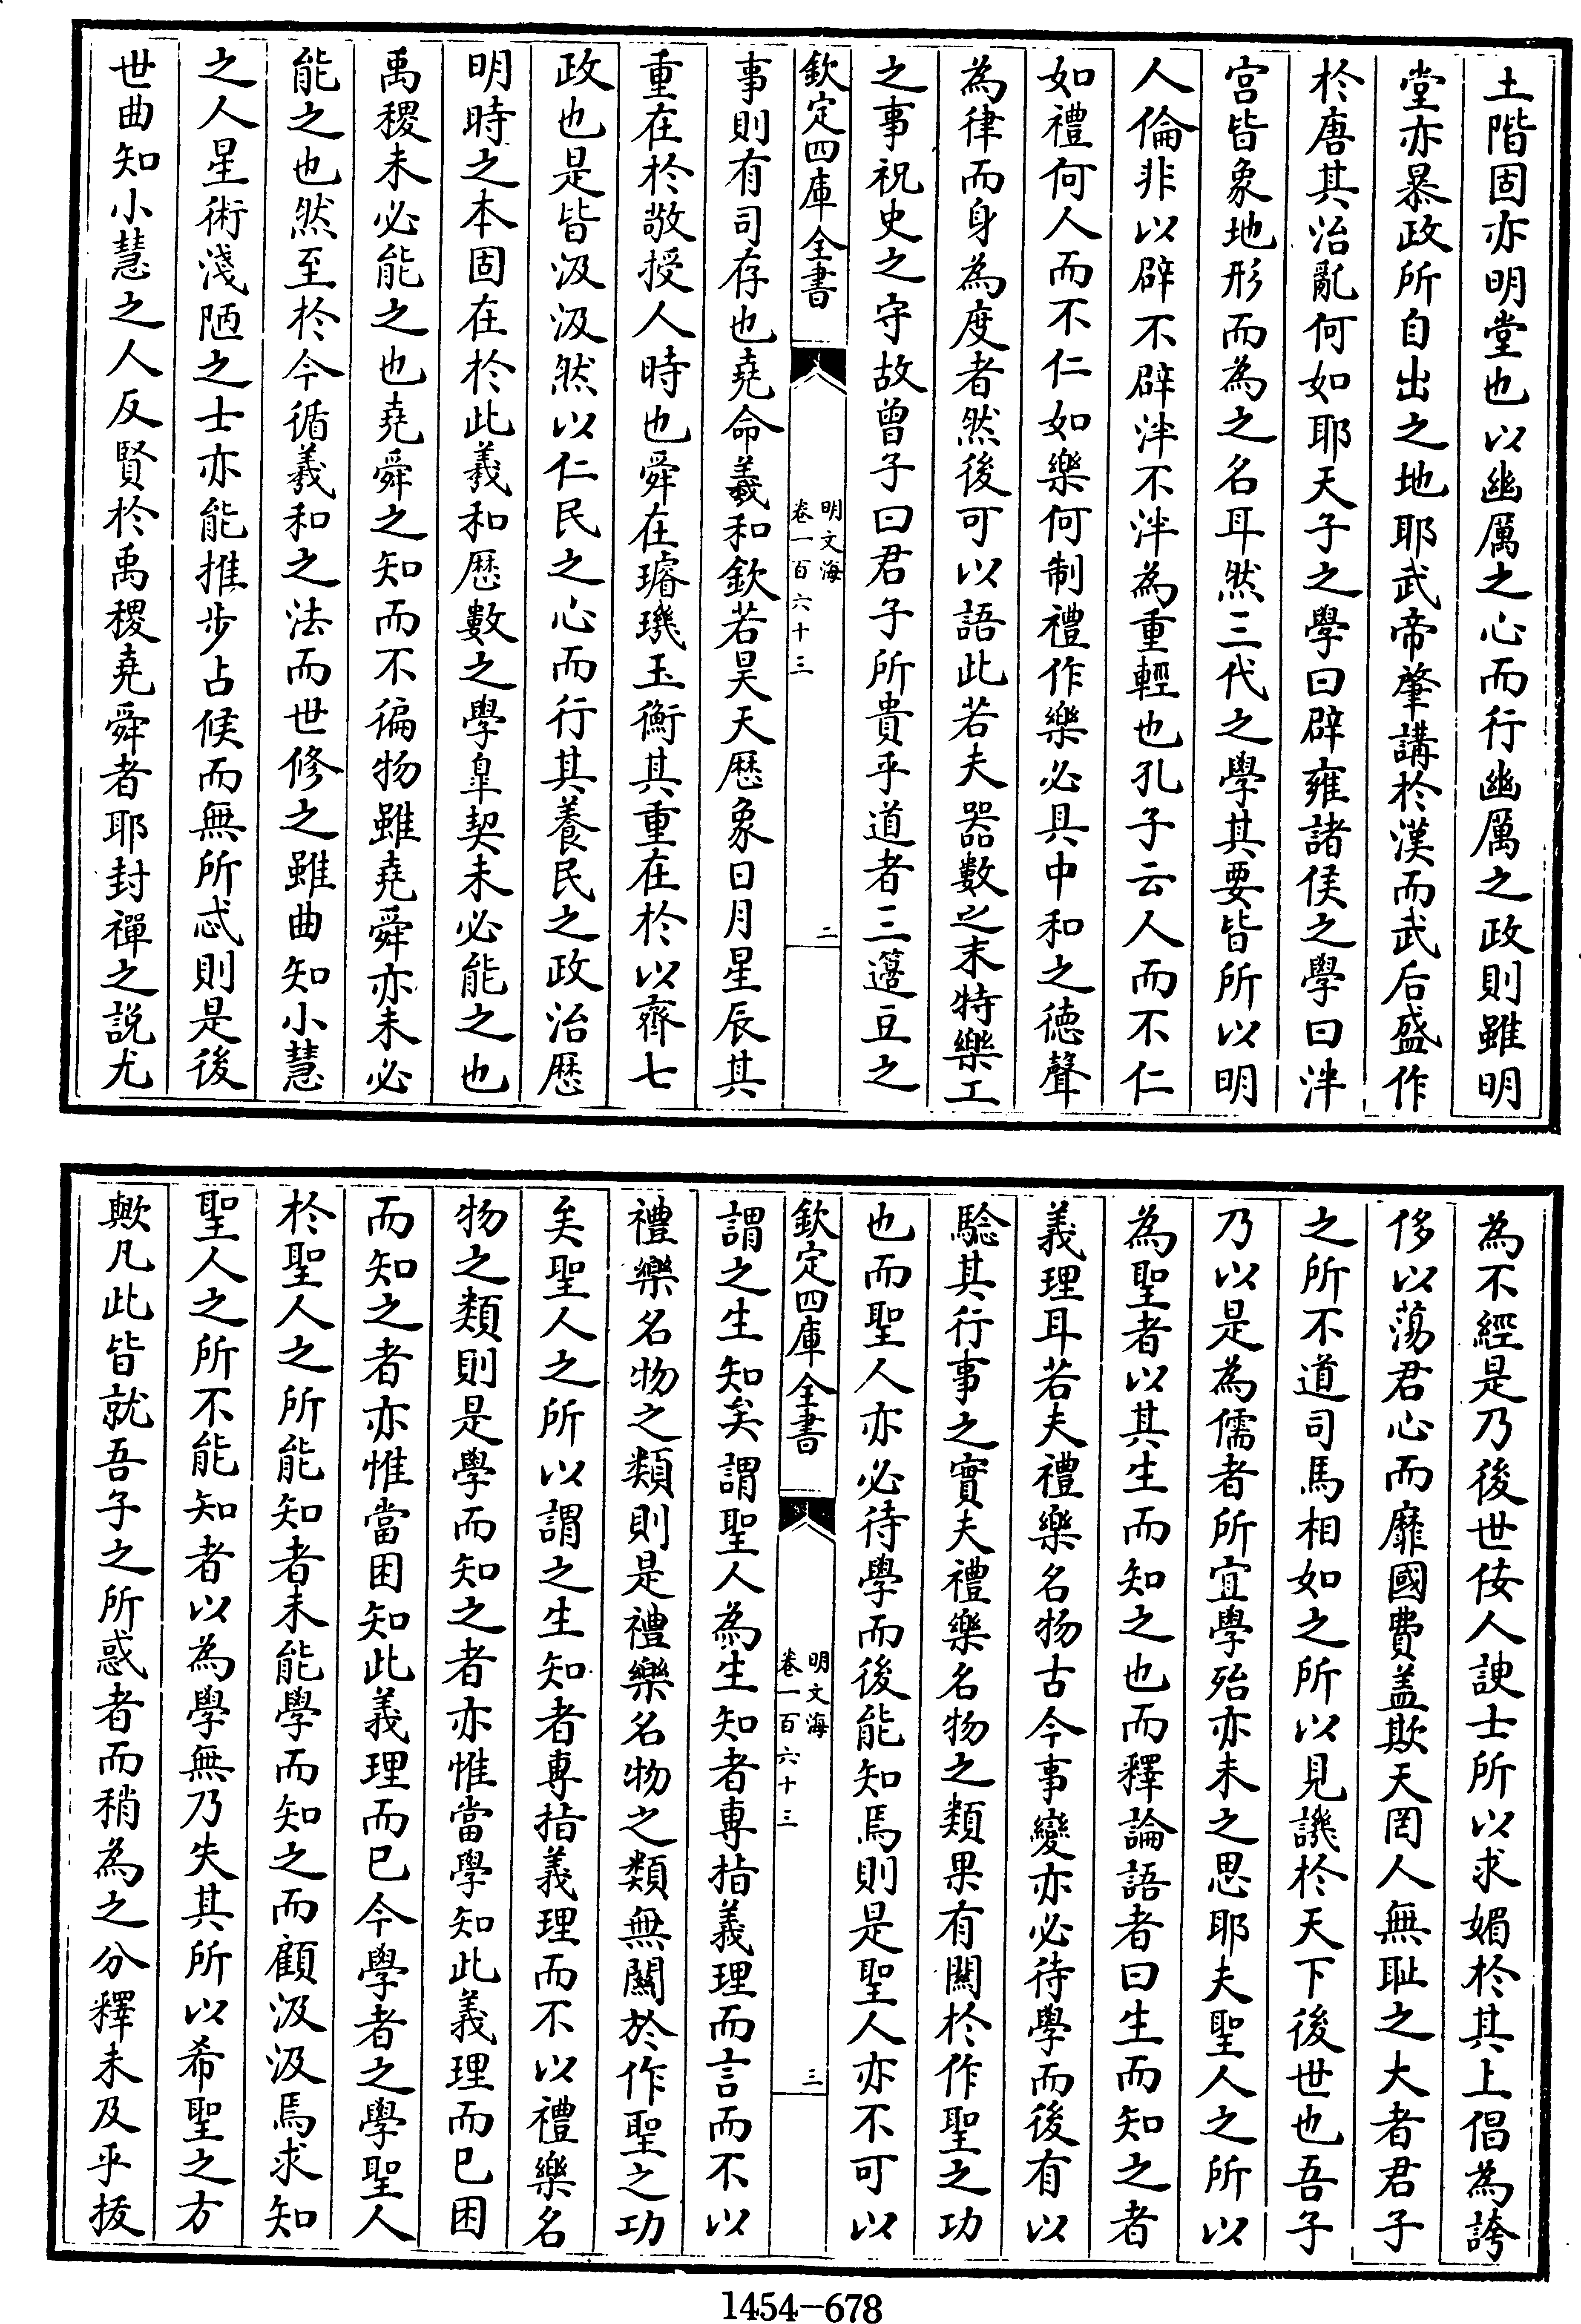 土階固亦明堂也以幽厲之心而行幽厲之政則雖明
堂亦暴政所自出之地耶武帝肇講於漢而武后盛作
於唐其治亂何如耶天子之學曰辟雍諸侯之學曰泮
宮皆象地形而為之名耳然三代之學其要皆所以明
人倫非以辟不辟泮不泮為重輕也孔子云人而不仁
如禮何人而不仁如樂何制禮作樂必具中和之德聲
為律而身為度者然後可以語此若夫器數之末特樂工
之事祝史之守故曾子曰君子所貴乎道者三籩豆之
欽定四庫全書
明文海
卷一百六十三
二
事則有司存也堯命羲和欽若昊天厯象日月星辰其
重在於敬授人時也舜在璿璣玉衡其重在於以齊七
政也是皆汲汲然以仁民之心而行其養民之政治厯
明時之本固在於此羲和厯數之學臯契未必能之也
禹稷未必能之也堯舜之知而不徧物雖堯舜亦未必
能之也然至於今循羲和之法而世修之雖曲知小慧
之人星術淺陋之士亦能推步占候而無所忒則是後
世曲知小慧之人反賢於禹稷堯舜者耶封禪之説尤
為不經是乃後世佞人諛士所以求媚於其上倡為誇
侈以蕩君心而靡國費盖欺天罔人無耻之大者君子
之所不道司馬相如之所以見譏於天下後世也吾子
乃以是為儒者所宜學殆亦未之思耶夫聖人之所以
為聖者以其生而知之也而釋論語者曰生而知之者
義理耳若夫禮樂名物古今事變亦必待學而後有以
驗其行事之實夫禮樂名物之類果有關於作聖之功
也而聖人亦必待學而後能知焉則是聖人亦不可以
欽定四庫全書
明文海
卷一百六十三
三
謂之生知矣謂聖人為生知者專指義理而言而不以
禮樂名物之類則是禮樂名物之類無關於作聖之功
矣聖人之所以謂之生知者專指義理而不以禮樂名
物之類則是學而知之者亦惟當學知此義理而已困
而知之者亦惟當困知此義理而已今學者之學聖人
於聖人之所能知者未能學而知之而顧汲汲焉求知
聖人之所不能知者以為學無乃失其所以希聖之方
歟凡此皆就吾子之所惑者而稍為之分釋未及乎拔
1454—678